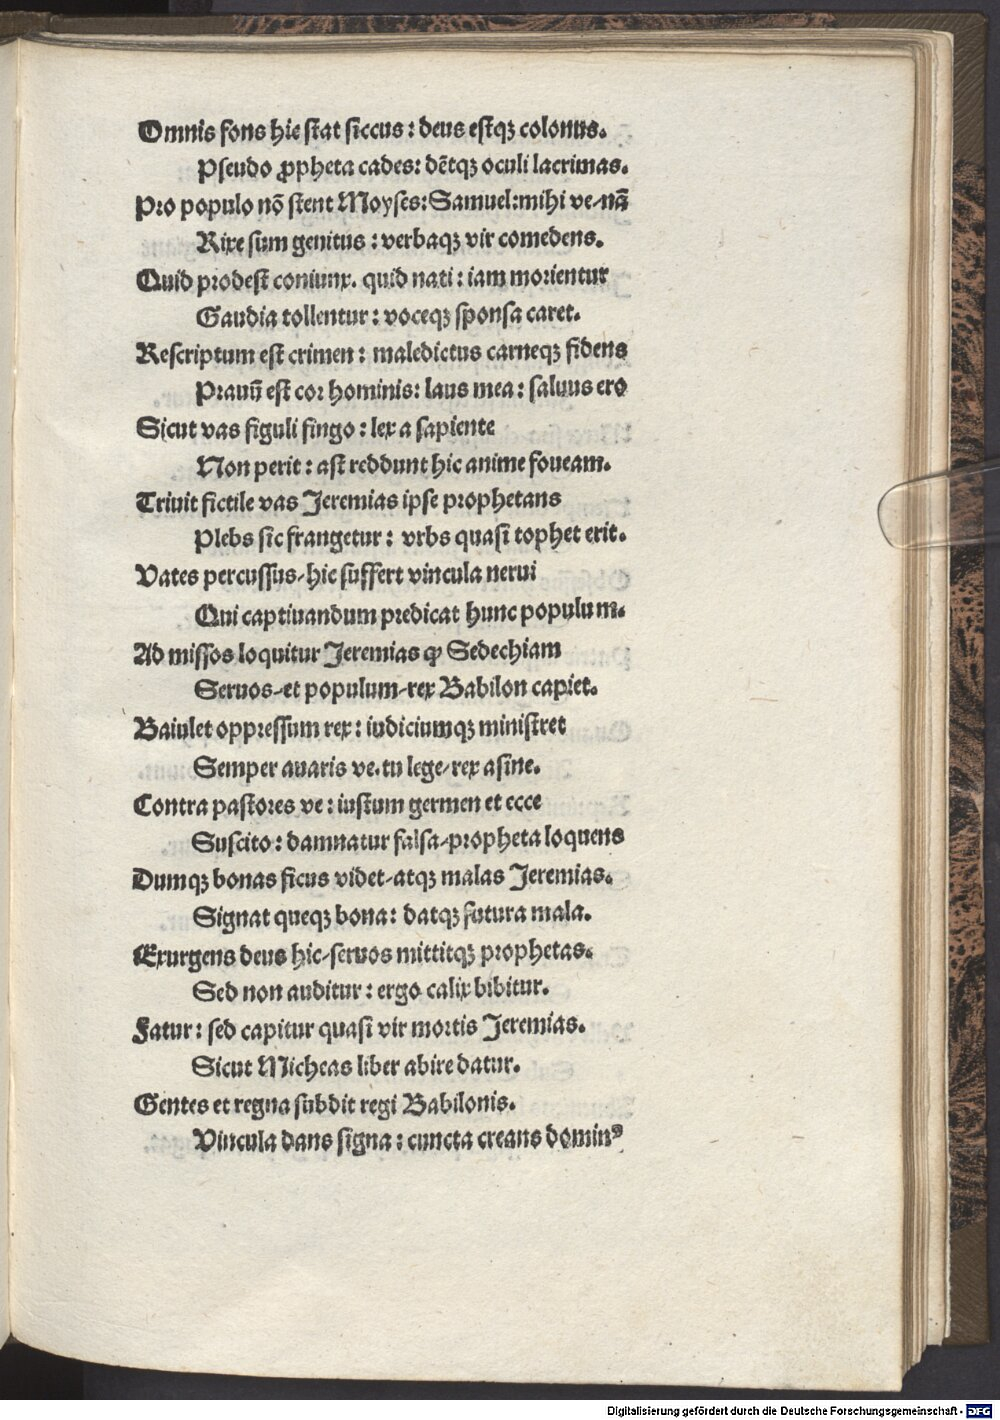 Omnis fons hic stat siccus: deus estqꝫ colonus.
Pseudo ꝓpheta cades: dētqꝫ oculi lacrimas.
Pro populo nō stent Moyses: Samuel: mihi ve-nā
Rixe sum genitus: verbaqꝫ vir comedens.
Quid prodest coniunx. quid nati: iam morientur
Gaudia tollentur: voceqꝫ sponsa caret.
Rescriptum est crimen: maledictus carneqꝫ fidens
Prauū est cor hominis: laus mea: saluus ero
Sicut vas figuli fingo: lex a sapiente
Non perit: ast reddunt hic anime foueam.
Triuit fictile vas Jeremias ipse prophetans
Plebs sic frangetur: vrbs quasi tophet erit.
Vates percussus-hic suffert vincula nerui
Qui captiuandum predicat hunc populum.
Ad missos loquitur Jeremias ꝙ Sedechiam
Seruos-et populum-rex Babilon capiet.
Baiulet oppressum rex: iudiciumqꝫ ministret
Semper auaris ve. tu lege-rex asine.
Contra pastores ve: iustum germen et ecce
Suscito: damnatur falsa-propheta loquens
Dumqꝫ bonas ficus videt-atqꝫ malas Jeremias.
Signat queqꝫ bona: datqꝫ futura mala.
Exurgens deus hic-seruos mittitqꝫ prophetas.
Sed non auditur: ergo calix bibitur.
Fatur: sed capitur quasi vir mortis Jeremias.
Sicut Micheas liber abire datur.
Gentes et regna subdit regi Babilonis.
Vincula dans signa: cuncta creans dominꝰ
Digitalisierung gefördert durch die Deutsche Forschungsgemeinschaft - DFG